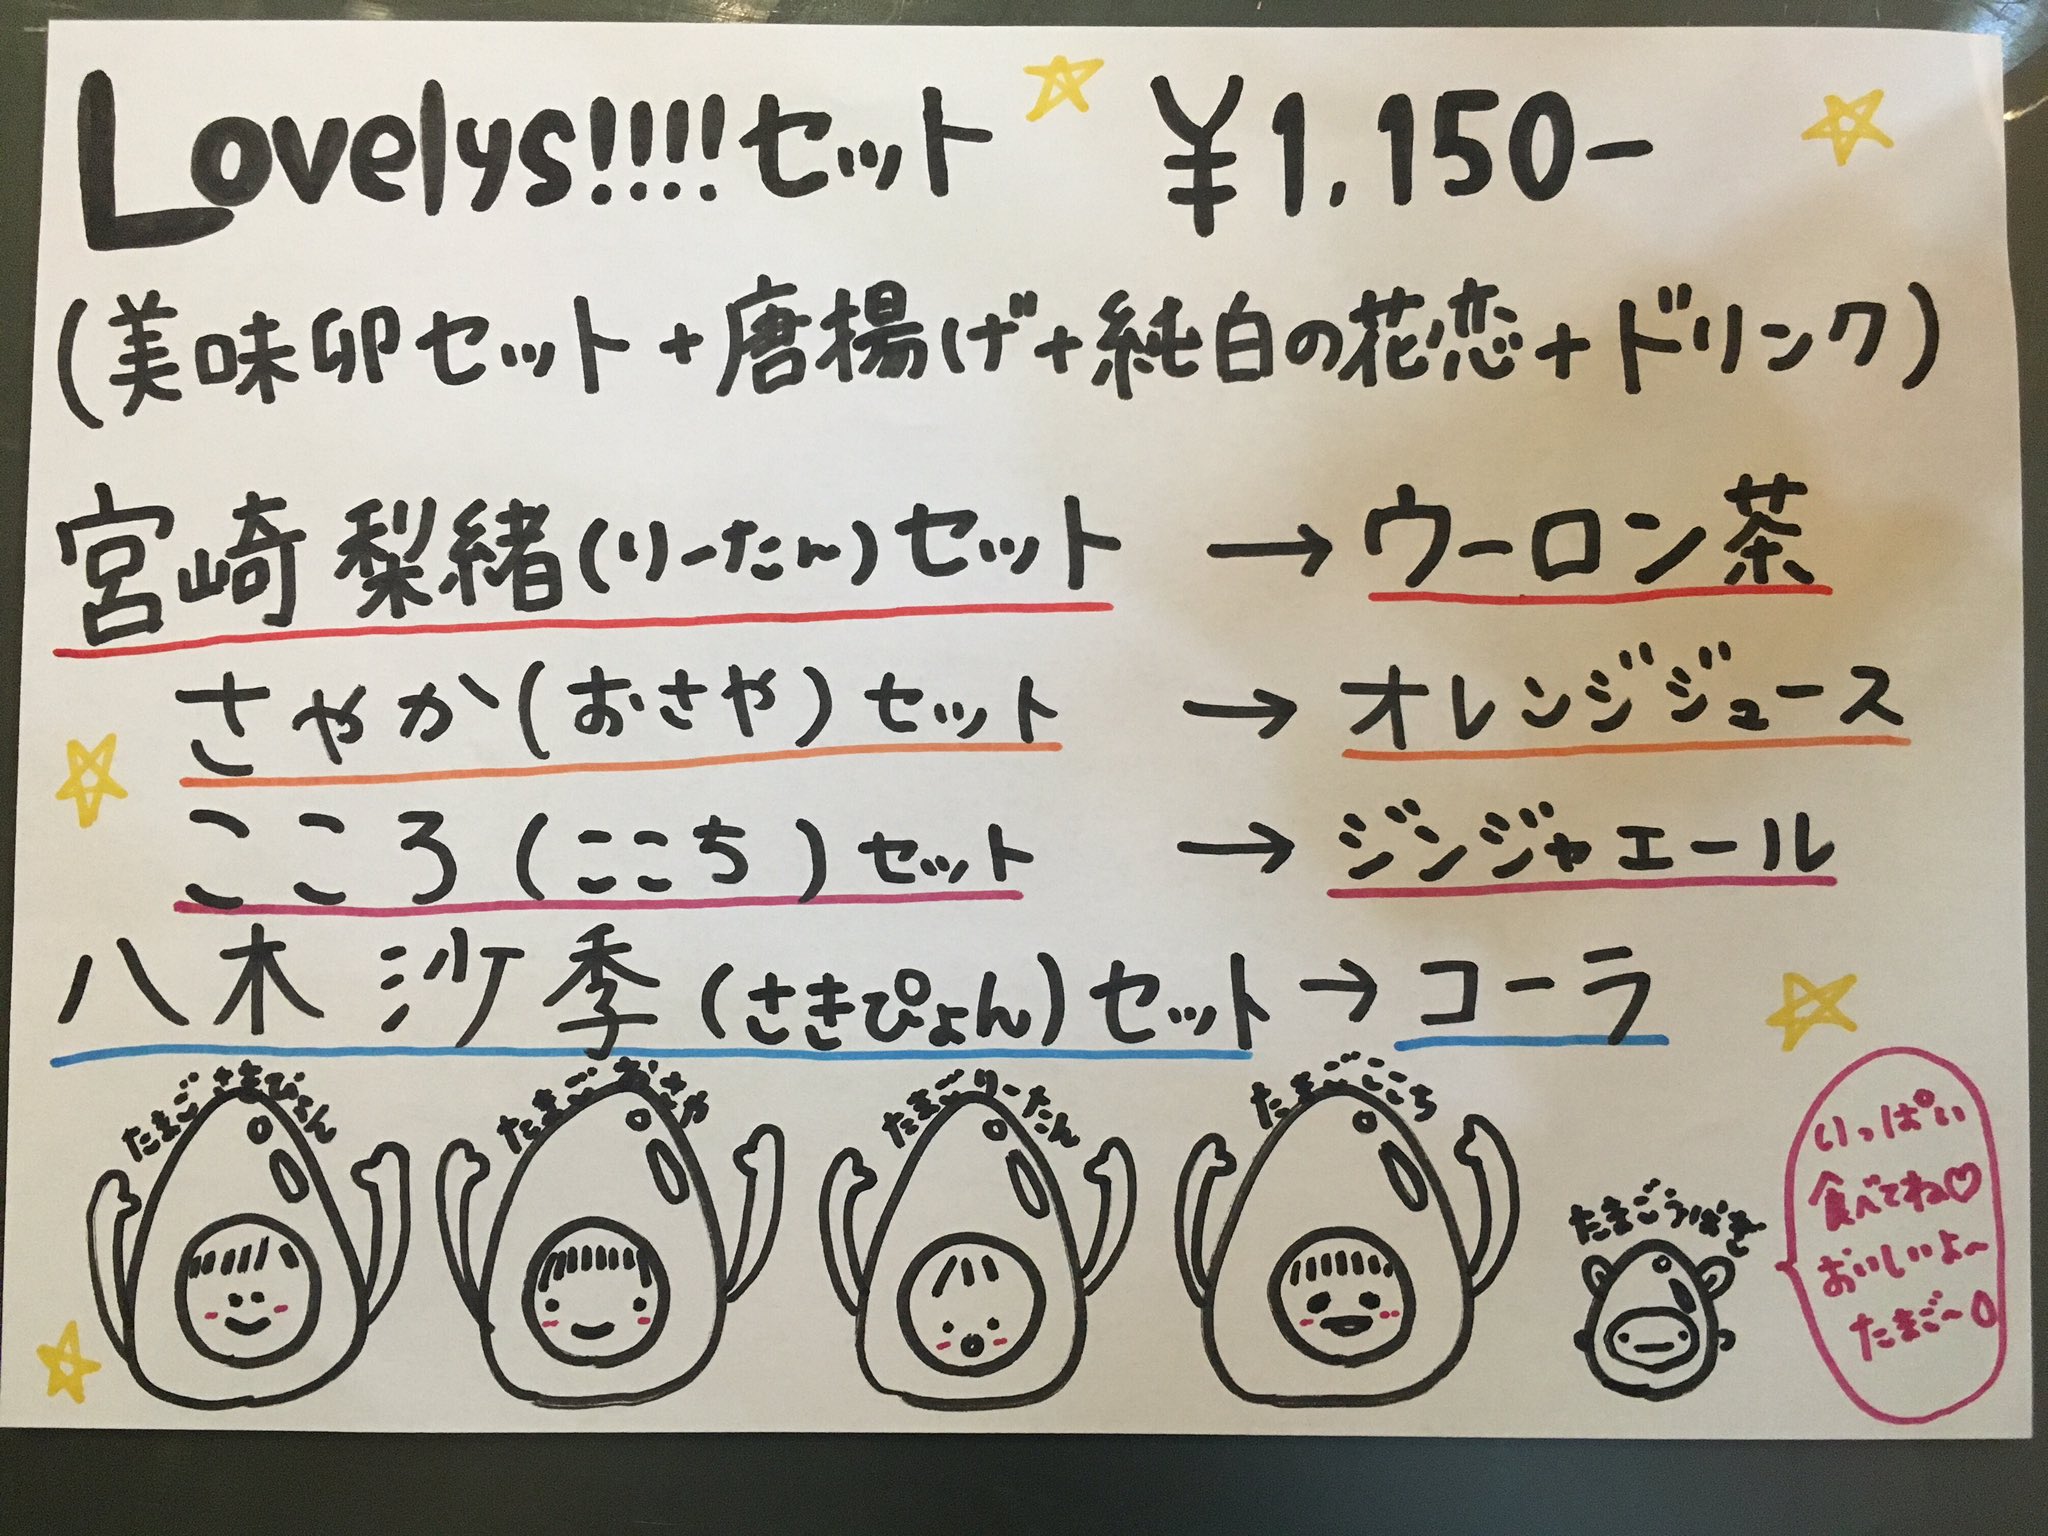 Lovelys!!!!セット ¥1,150-
(美味卵セット+唐揚げ+純白の花恋+ドリンク)
宮崎梨緒(りーたん)セット → ウーロン茶
さやか(おさや)セット → オレンジジュース
こころ(ここち)セット → ジンジャエール
八木沙季(さきぴょん)セット → コーラ
たまごさきぴょん
たまごおさや
たまごりーたん
たまごここち
たまごうなぎ
いっぱい
食べてね♡
おいしいよ~
たまご~